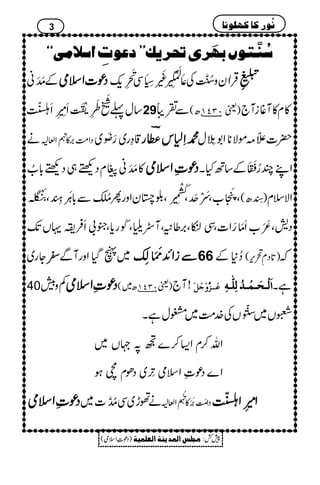 نُور کا کھلونا
3
سُنّتوں بھَری تحریک ’’دعوتِ اسلامی‘‘
تبلیغِ قرآن وسُنّت کی عالمگیر غیر سیاسی تحریک دعوتِ اسلامی کے مَدَنی
کام کا آغاز آج (یعنی ۱۴۳۰ھ) سے تقریباً 29 سال پہلے شیخِ طریقت، امیرِ اَہلسنّت،
حضرتِ علّامہ مولانا ابو بلال محمد الیاس عطّار قادِری رَضَوی دامت برکاتہم العالیہ نے
اپنے چند رُفَقا کے ساتھ کیا۔ دعوتِ اسلامی کا مَدَنی پیغام دیکھتے ہی دیکھتے بابُ
الاسلام (سندھ)، پنجاب، سَرحَد، کشمیر، بلوچستان اور پھر مُلک سے باہَر ہند، بنگلہ
دیش، عَرَب اَمارات، سی لنکا، برطانیہ، آسٹریلیا، کوریا، جنوبی افریقہ یہاں تک
کہ (تادمِ تحریر) دُنیا کے 66 سے زائد مَمالِک میں پہنچ گیا اور آگے سفر جاری
ہے۔ اَلْحَمْدُ لِلّٰہِ عَزَّوَجَلَّ! آج (یعنی ۱۴۳۰ھ میں) دعوتِ اسلامی کم و بیش 40
شعبوں میں سنّتوں کی خدمت میں مشغول ہے۔
اللہ کرم ایسا کرے تجھ پہ جہاں میں
اے دعوتِ اسلامی تِری دھوم مچی ہو
امیرِ اہلسنّت دامت برکاتہم العالیہ نے تھوڑی سی مُدّت میں دعوتِ اسلامی
پیش کش: مجلس المدینۃ العلمیۃ (دعوتِ اسلامی)